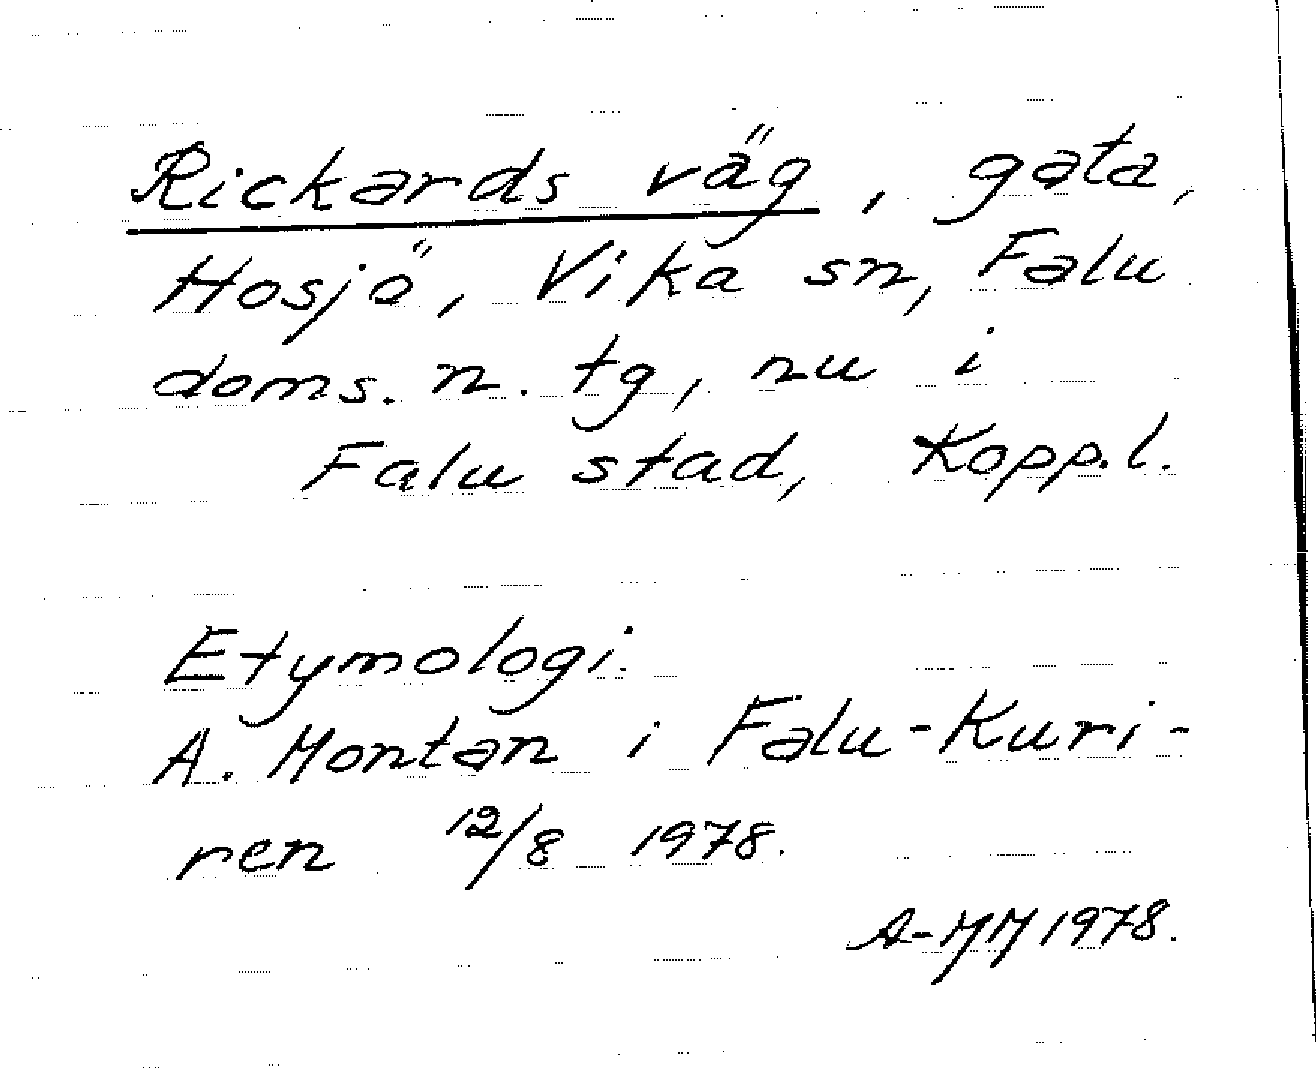 Rickards väg, gata,
Hosjö, Vika sn, Falu
doms. n. tg, nu i
Falu stad, Kopp.l.
Etymologi.
A. Montan i Falu-Kuri-
ren 12/8 1978.
A-MM 1978.